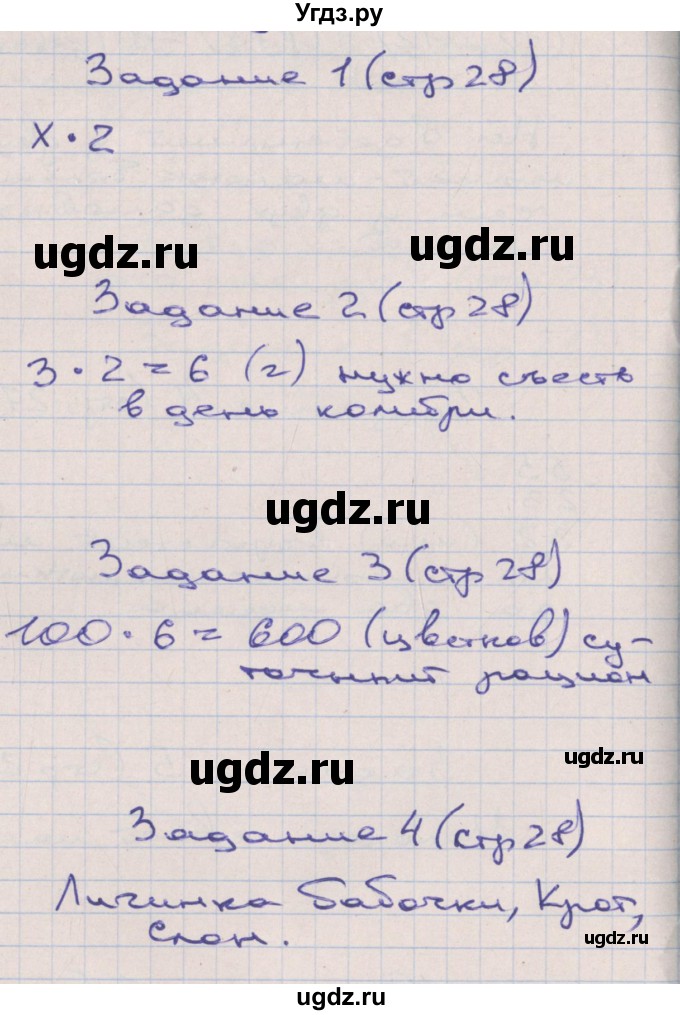 Угдз.ру
Задание 1 (стр 28)
х · 2
ugdz.ru ugdz.ru
Задание 2 (стр 28)
3 · 2 = 6 (г) нужно съесть
в день колибри.
ugdz.ru
Задание 3 (стр 28)
100 · 6 = 600 (цветков) су-
точнный рацион
ugdz.ru
ugdz.ru
Задание 4 (стр 28)
Личинка бабочки, Крот,
Слон.
ugdz.ru
ugdz.ru